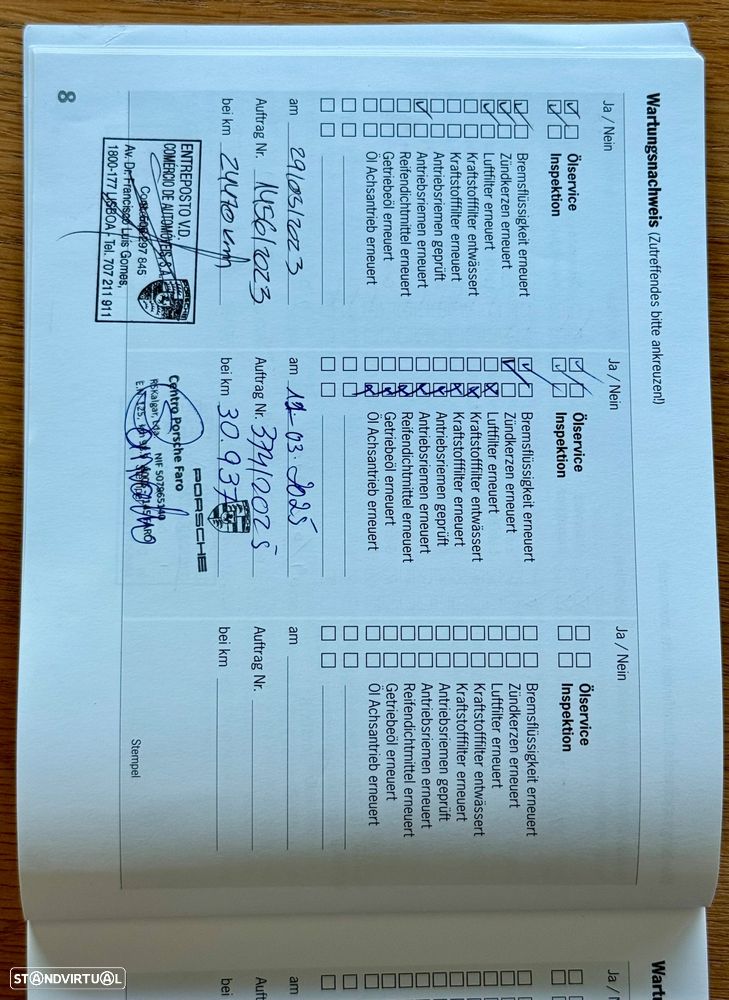 Wartungsnachweis (Zutreffendes bitte ankreuzen!)
Ja / Nein
Ölservice
Inspektion
Bremsflüssigkeit erneuert
Zündkerzen erneuert
Luftfilter erneuert
Kraftstofffilter entwässert
Kraftstofffilter erneuert
Antriebsriemen geprüft
Antriebsriemen erneuert
Reifendichtmittel erneuert
Getriebeöl erneuert
Öl Achsantrieb erneuert
am 29/03/2023
Auftrag Nr. 1456/2023
bei km 24470 km
ENTREPOSTO V.D.
COMÉRCIO DE AUTOMÓVEIS, S.A.
PORSCHE
297 845
Av. Dr. Francisco Luís Gomes,
1800-177 LISBOA - Tel. 707 211 911
Ja / Nein
Ölservice
Inspektion
Bremsflüssigkeit erneuert
Zündkerzen erneuert
Luftfilter erneuert
Kraftstofffilter entwässert
Kraftstofffilter erneuert
Antriebsriemen geprüft
Antriebsriemen erneuert
Reifendichtmittel erneuert
Getriebeöl erneuert
Öl Achsantrieb erneuert
am 19.03.2025
Auftrag Nr. 374/2025
bei km 30.937
PORSCHE
Centro Porsche Faro
RSKalgar, Lda. NIF
E.N. 125,
Ja / Nein
Ölservice
Inspektion
Bremsflüssigkeit erneuert
Zündkerzen erneuert
Luftfilter erneuert
Kraftstofffilter entwässert
Kraftstofffilter erneuert
Antriebsriemen geprüft
Antriebsriemen erneuert
Reifendichtmittel erneuert
Getriebeöl erneuert
Öl Achsantrieb erneuert
am
Auftrag Nr.
bei km
Stempel
8
Wart
Ja /
am
Auft
bei
STANDVIRTUAL